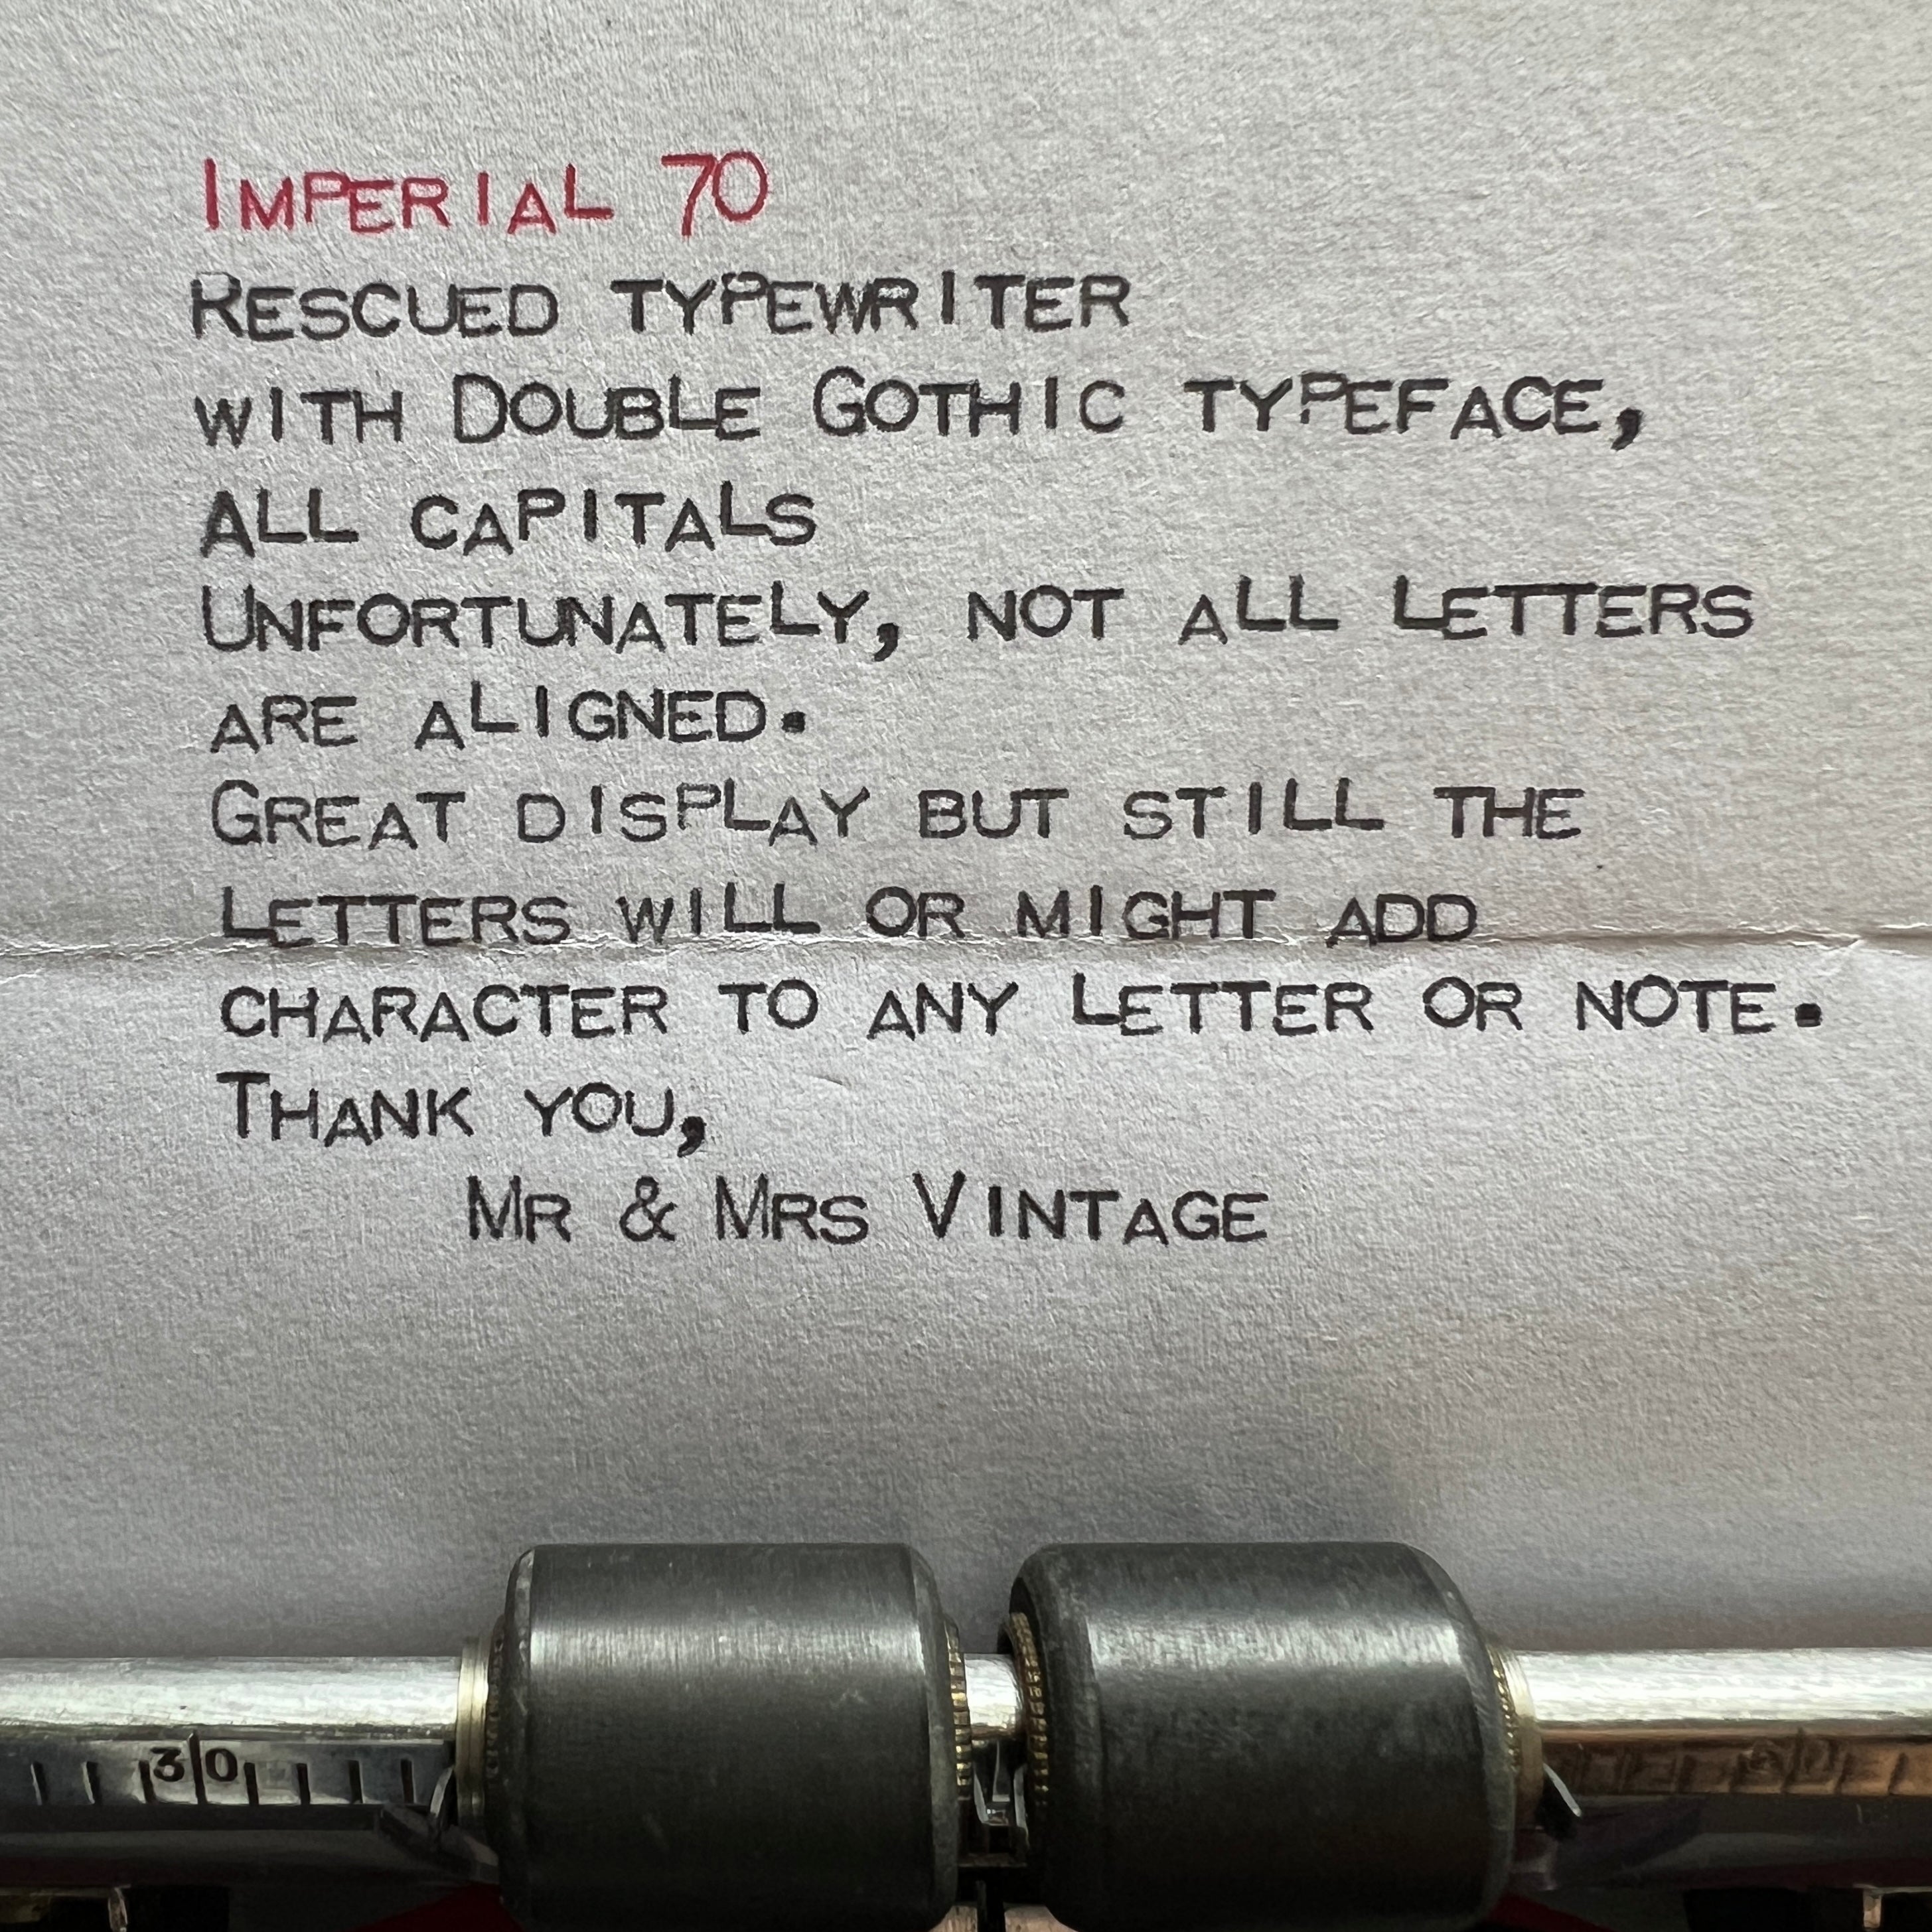 Imperial 70
Rescued typewriter
with Double Gothic typeface,
all capitals
Unfortunately, not all letters
are aligned.
Great display but still the
letters will or might add
character to any letter or note.
Thank you,
Mr & Mrs Vintage
30